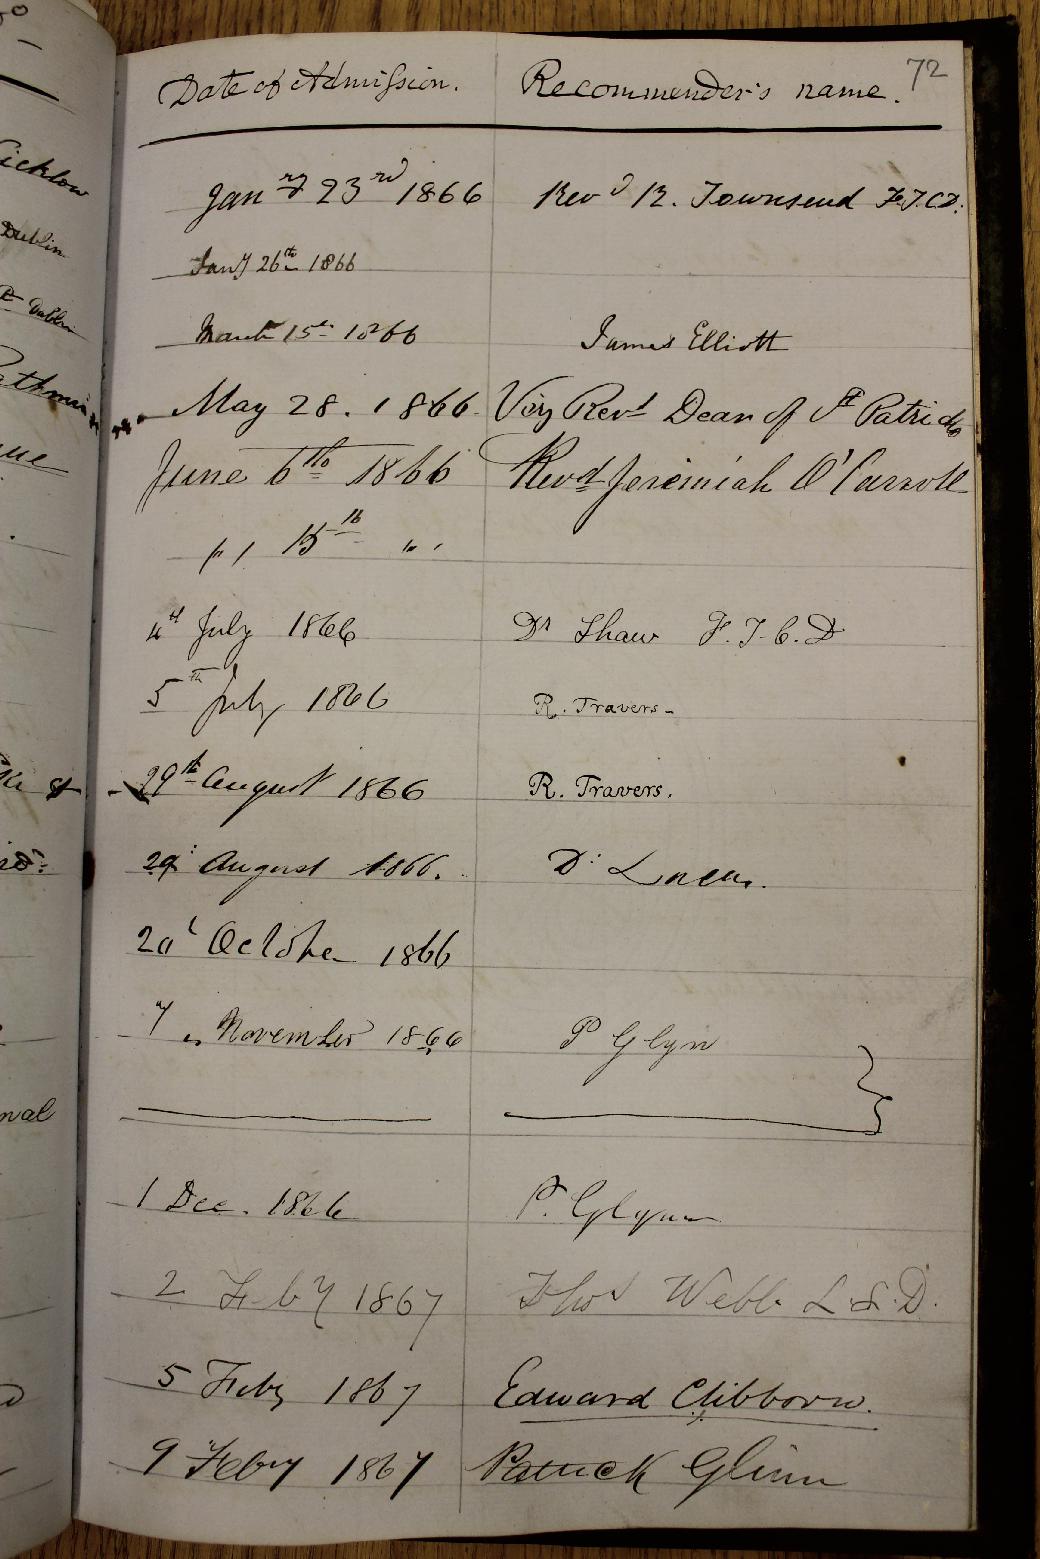 72
Date of Admission. Recommender's name.
Jan ry 23 rd 1866 Rev d R. Townsend F.T.C.D.
Jany 26th 1866
March 15th 1866 James Elliott
May 28. 1866 Very Revd Dean of St Patricks
June 6th 1866 Revd Jeremiah O'Carroll
" " 15th " "
4th July 1866 Dr Shaw F.T.C.D
5th July 1866 R. Travers-
29th August 1866 R. Travers.
29: August 1866.  Dr
October 1866
7 November 1866 P Glyn
1 Dec. 1866 P. Glynn
2 Feby 1867 Thos Webb L.L.D.
5 Feby 1867 Edward Clibborn.
9 Feby 1867 Patrick Glinn
Wicklow
Dublin
Dublin